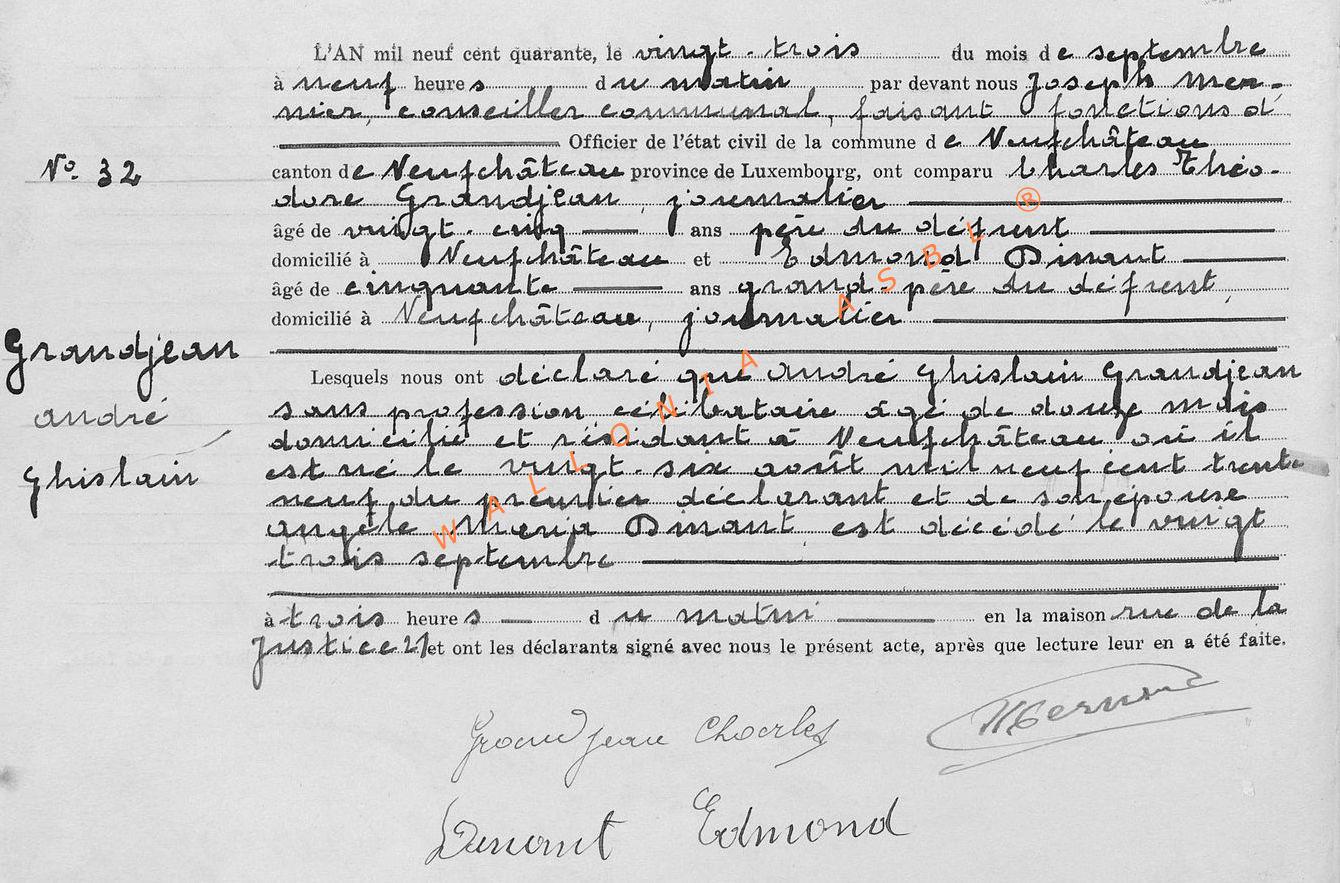 L'AN mil neuf cent quarante, le vingt-trois du mois de septembre
à neuf heures du matin par devant nous Joseph Mer-
nier, conseiller communal, faisant fonctions d'
Officier de l'état civil de la commune de Neufchâteau
N° 32
canton de Neufchâteau province de Luxembourg, ont comparu Charles Théo-
dore Grandjean, journalier
âgé de vingt-cinq ans père du défunt
domicilié à Neufchâteau et Edmond Dinant
âgé de cinquante ans grand-père du défunt,
domicilié à Neufchâteau, journalier
Grandjean
André
Ghislain
Lesquels nous ont déclaré que André Ghislain Grandjean
sans profession célibataire âgé de douze mois
domicilié et résidant à Neufchâteau où il
est né le vingt-six août mil neuf cent trente
neuf du premier déclarant et de son épouse
Angèle Maria Dinant est décédé le vingt
trois septembre
à trois heures du matin en la maison rue de la
Justice 21 et ont les déclarants signé avec nous le présent acte, après que lecture leur en a été faite.
Grandjean Charles
Mernier
Dinant Edmond
WALLONIA ASBL ®